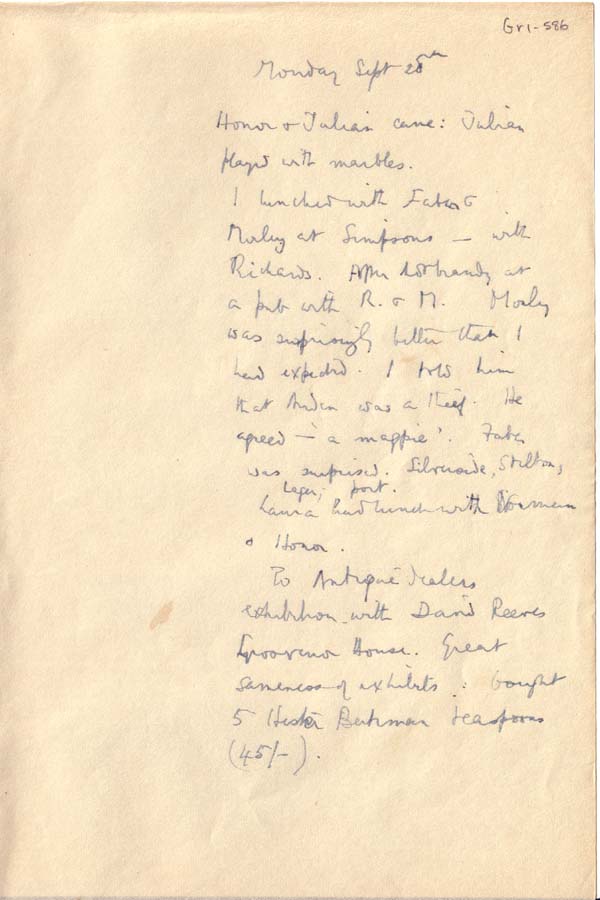 Gr1-586
Monday Sept 28th
Honor & Julian came: Julian
played with marbles.
I lunched with Faber &
Morley at Simpsons — with
Richards. After hot brandy at
a pub with R. & M. Morley
was surprisingly better than I
had expected. I told him
that Auden was a thief. He
agreed — 'a magpie'. Faber
was surprised. Silverside, Stilton,
Lager, port.
Laura had lunch with Norman
& Honor.
To Antique dealers
exhibition with David Reeves
Grosvenor House. Great
sameness of exhibits: bought
5 Hester Bateman teaspoons
(45/-).